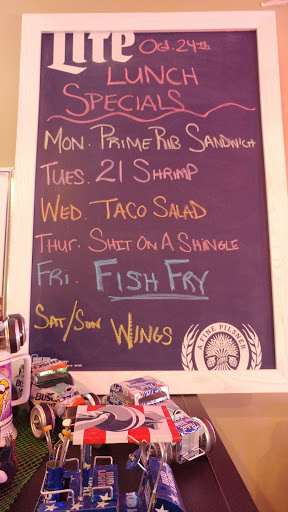 Lite Oct. 24th
LUNCH
SPECIALS
MON. PRIME RIB SANDWICH
TUES. 21 SHRIMP
WED. TACO SALAD
THUR. SHIT ON A SHINGLE
FRI. FISH FRY
SAT/SUN WINGS
A FINE PILSNER